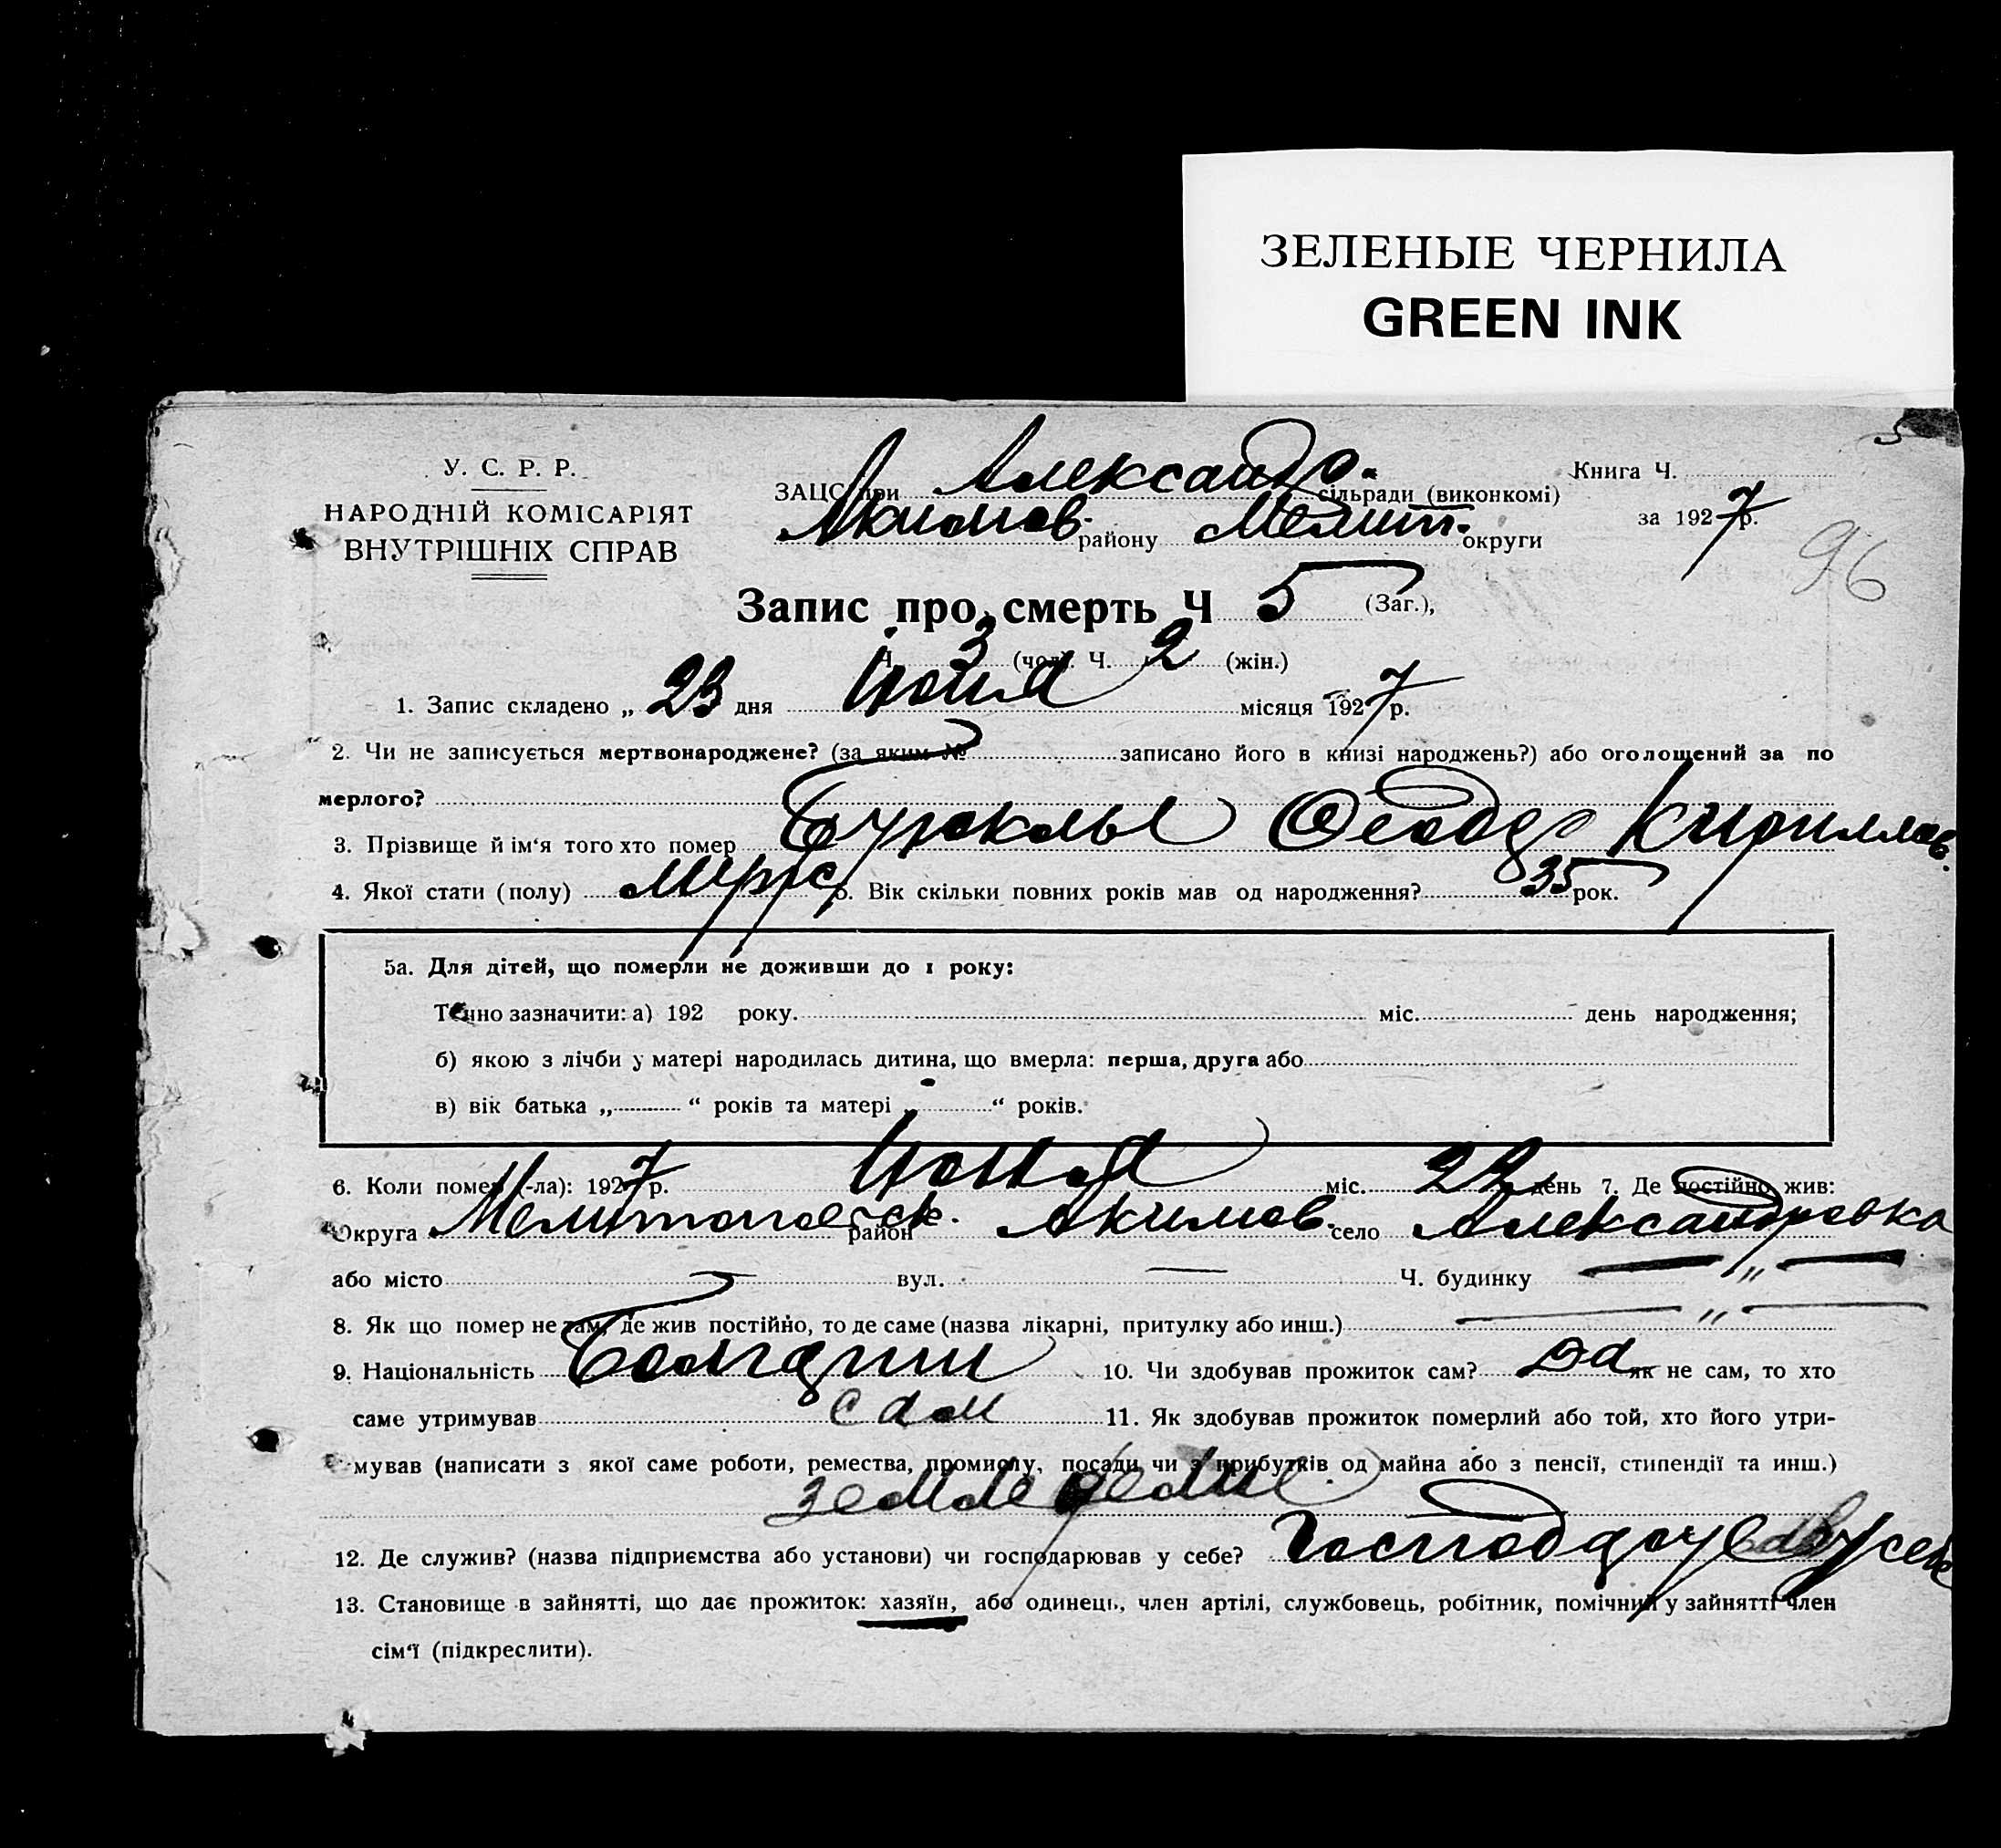 ЗЕЛЕНЫЕ ЧЕРНИЛА
GREEN INK
5
У. С. Р. Р.
НАРОДНІЙ КОМІСАРІЯТ
ВНУТРІШНІХ СПРАВ
ЗАЦС при Александр. сільради (виконкомі)
Акимов. району Мелит. округи
Книга Ч.
за 1927 р.
96
Запис про смерть Ч 5 (Заг.),
Ч. 3 (чол). Ч. 2 (жін.)
1. Запис складено „ 23 дня місяця 1927 р.
2. Чи не записується мертвонароджене? (за яким № записано його в книзі народжень?) або оголошений за по
мерлого?
3. Прізвище й ім‘я того хто помер Феодор Кириллов.
4. Якої стати (полу) 5. Вік скільки повних років мав од народження? 35 рок.
5а. Для дітей, що померли не доживши до 1 року:
Точно зазначити: а) 192 року. міс. день народження;
б) якою з лічби у матері народилась дитина, що вмерла: перша, друга або
в) вік батька „ “ років та матері „ “ років.
6. Коли помер (-ла): 1927 р. міс. 22 день 7. Де постійно жив:
Округа Мелитопольск. район Акимов. село Александровка
або місто — вул. — Ч. будинку — „ —
8. Як що помер не там, де жив постійно, то де саме (назва лікарні, притулку або инш.) — „ —
9. Національність Болгарин 10. Чи здобував прожиток сам? Да як не сам, то хто
саме утримував сам 11. Як здобував прожиток померлий або той, хто його утри-
мував (написати з якої саме роботи, ремества, промислу, посади чи з прибутків од майна або з пенсії, стипендії та инш.)
земледелие
12. Де служив? (назва підприємства або установи) чи господарював у себе? у себе
13. Становище в зайнятті, що дає прожиток: хазяїн, або одинець, член артілі, службовець, робітник, помічний у зайнятті член
сім‘ї (підкреслити).